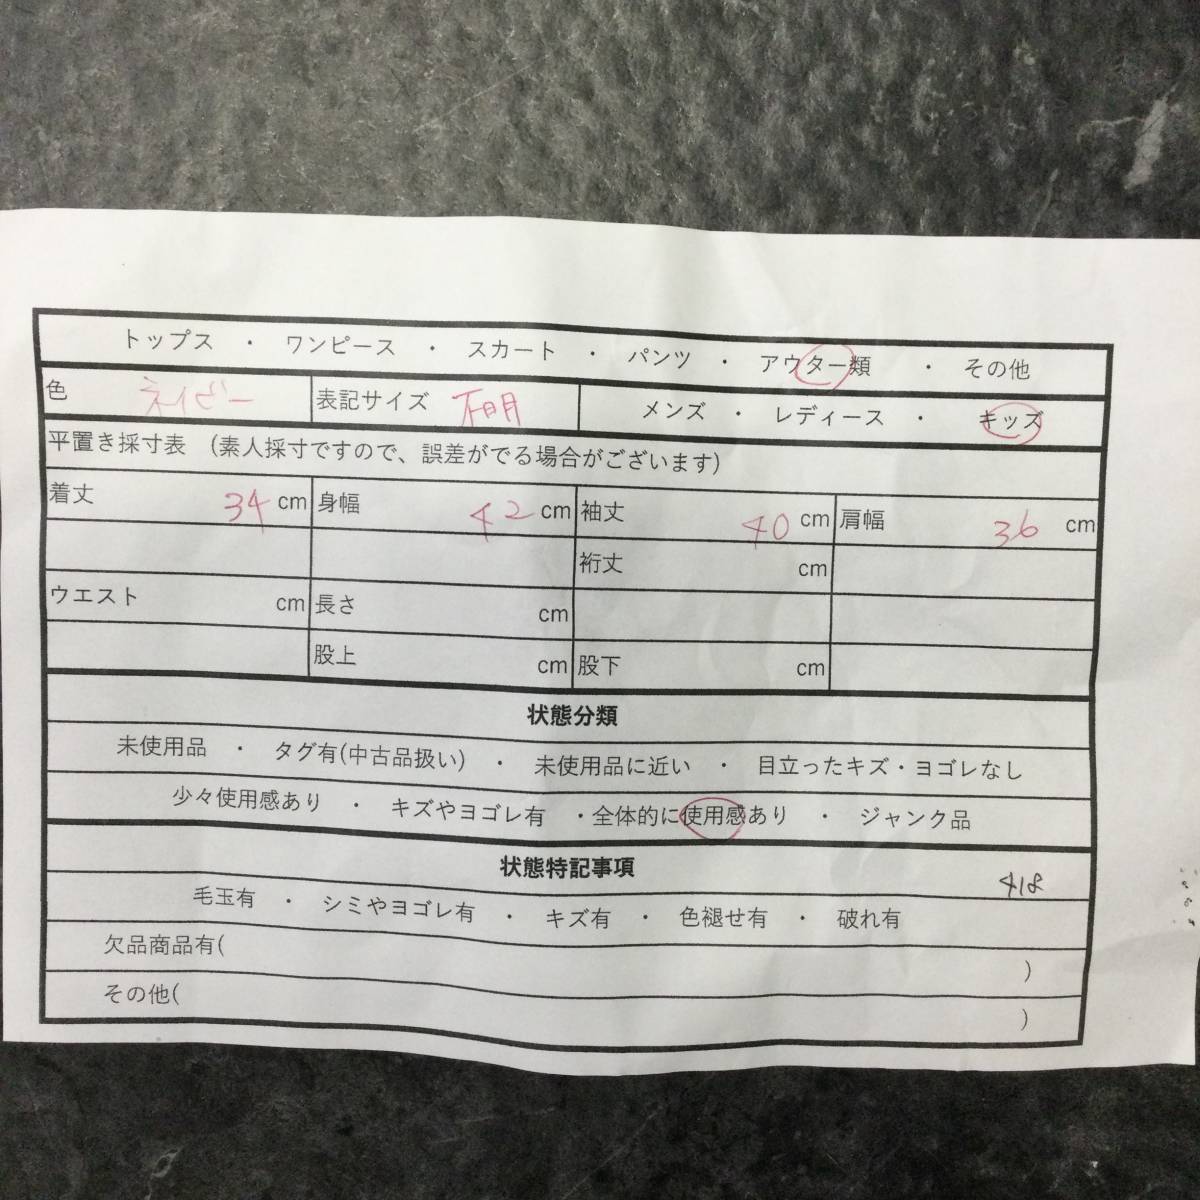 トップス ・ ワンピース ・ スカート ・ パンツ ・ アウター類 ・ その他
色 ネイビー 表記サイズ 不明 メンズ ・ レディース ・ キッズ
平置き採寸表 (素人採寸ですので、誤差がでる場合がございます)
着丈 34 cm 身幅 42 cm 袖丈 40 cm 肩幅 36 cm
裄丈 cm
ウエスト cm 長さ cm
股上 cm 股下 cm
状態分類
未使用品 ・ タグ有(中古品扱い) ・ 未使用品に近い ・ 目立ったキズ・ヨゴレなし
少々使用感あり ・ キズやヨゴレ有 ・全体的に使用感あり ・ ジャンク品
状態特記事項 418
毛玉有 ・ シミやヨゴレ有 ・ キズ有 ・ 色褪せ有 ・ 破れ有
欠品商品有( )
その他( )